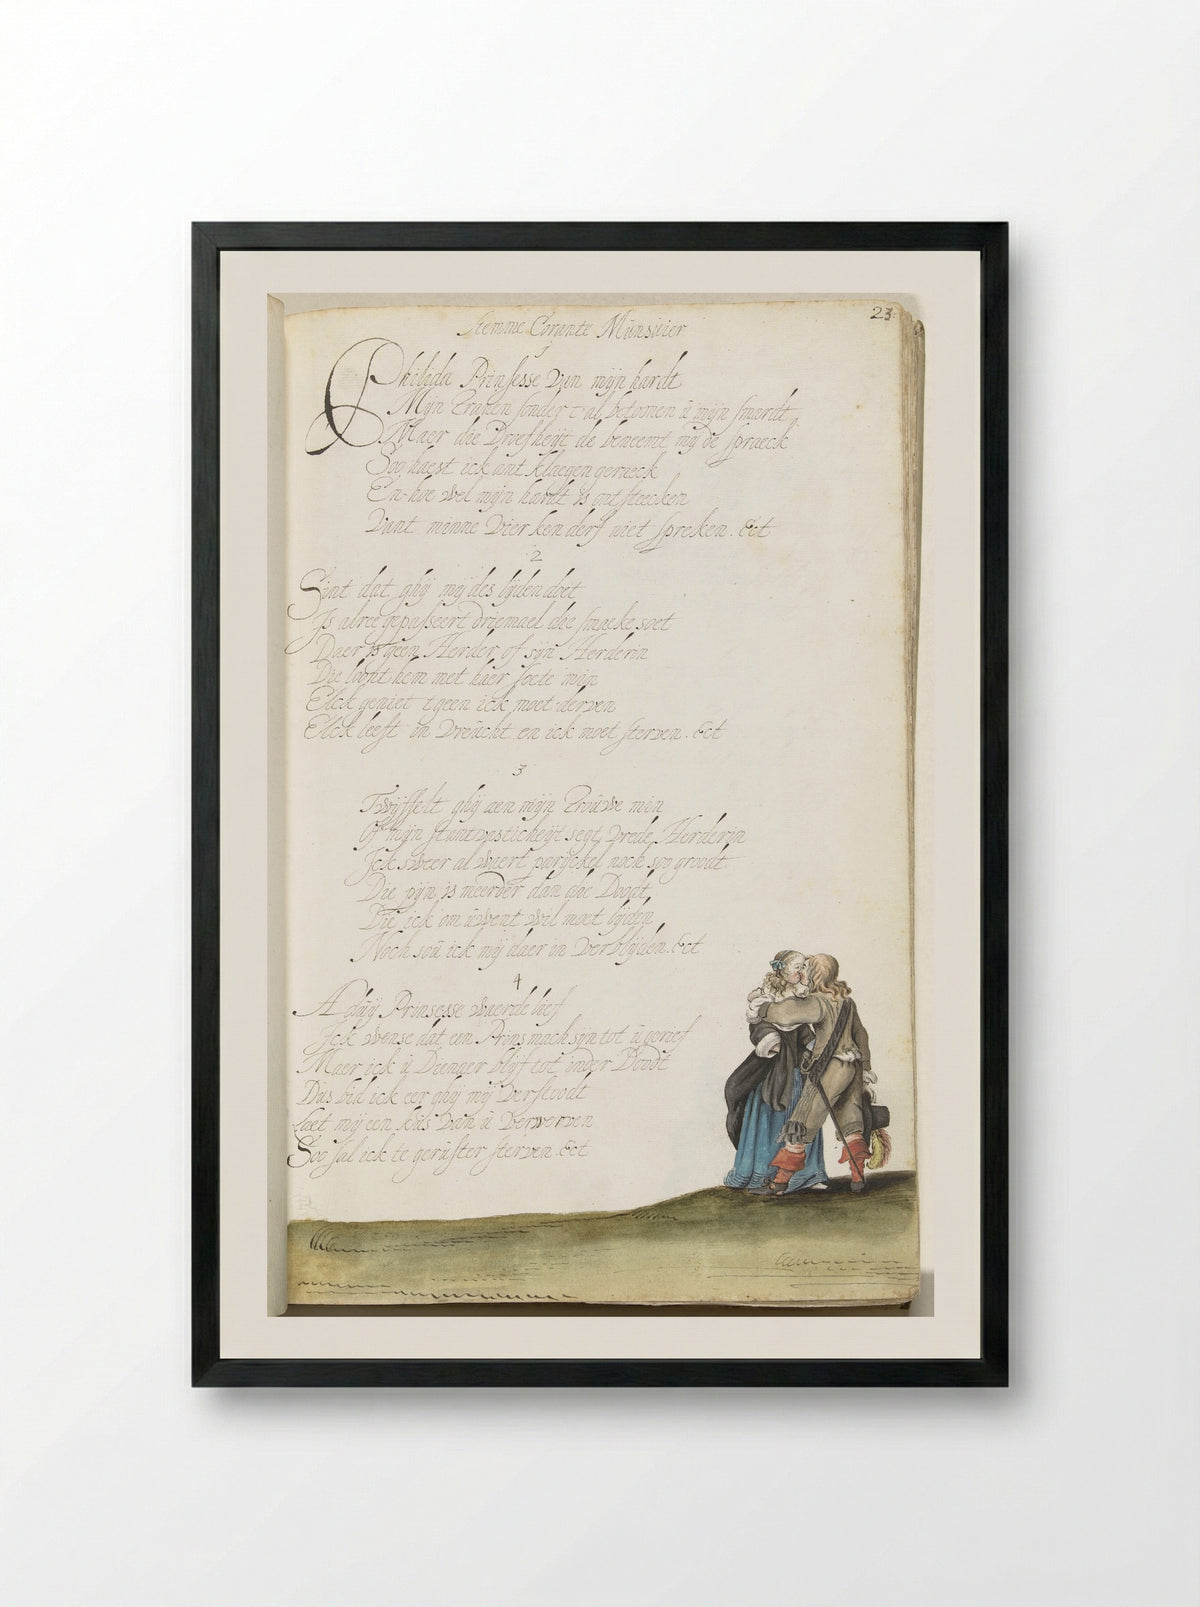 23
Stemme Corante Munsuier
Philida Prinsesse van mijn hardt
Mijn Tranen sonder tal betoonen ú mijn smardt
Maer die Droefheijt de beneemt mij de spraeck
Soo haest ick ant klaegen geraeck
En hoe wel mijn hardt is ontsteecken
Vant minne Vier ken derf niet spreken. &ct
2
Sint dat ghij mij dus lijden doet
Is alree gepasseert driemael die smaeke soet
Daer is geen Herder of sijn Herderin
Die loont hem met haer soete min
Elck geniet tgeen ick moet derven
Elck leeft in Vreúcht en ick moet sterven. &ct
3
Twijffelt ghij aen mijn Troúwe min
Of mijn stantvasticheijt segt, vrede Herderin
Ick sweer al waert parijckel noch soo groodt
Die pijn is meerder dan doe Doodt,
Die ick om úwent wil moet lijden
Noch soú ick mij daer in Verblijden. &ct
4
Adúij Prinsesse waerde lief
Ick wense dat een Prins mach sijn tot ú gerief
Maer ick ú Dienaer blijf tot inder Doodt
Dús bid ick eer ghij mij Verstoodt
Laet mij een kús van ú Verwerven
Soo sal ick te gerúster sterven. &ct